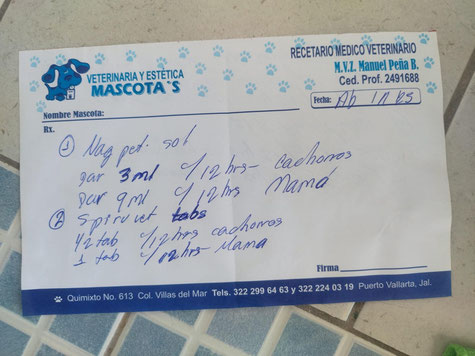 VETERINARIA Y ESTÉTICA
MASCOTA`S
RECETARIO MEDICO VETERINARIO
M.V.Z. Manuel Peña B.
Ced. Prof. 2491688
Nombre Mascota:
Fecha:
Rx.
① pet. sol
dar 3ml c/12 hrs- cachorros
Dar 9ml c/12 hrs Mamá
② tabs
1/2 tab c/12 hrs cachorros
1 tab c/12 hrs- Mama
Firma
Quimixto No. 613 Col. Villas del Mar Tels. 322 299 64 63 y 322 224 03 19 Puerto Vallarta, Jal.